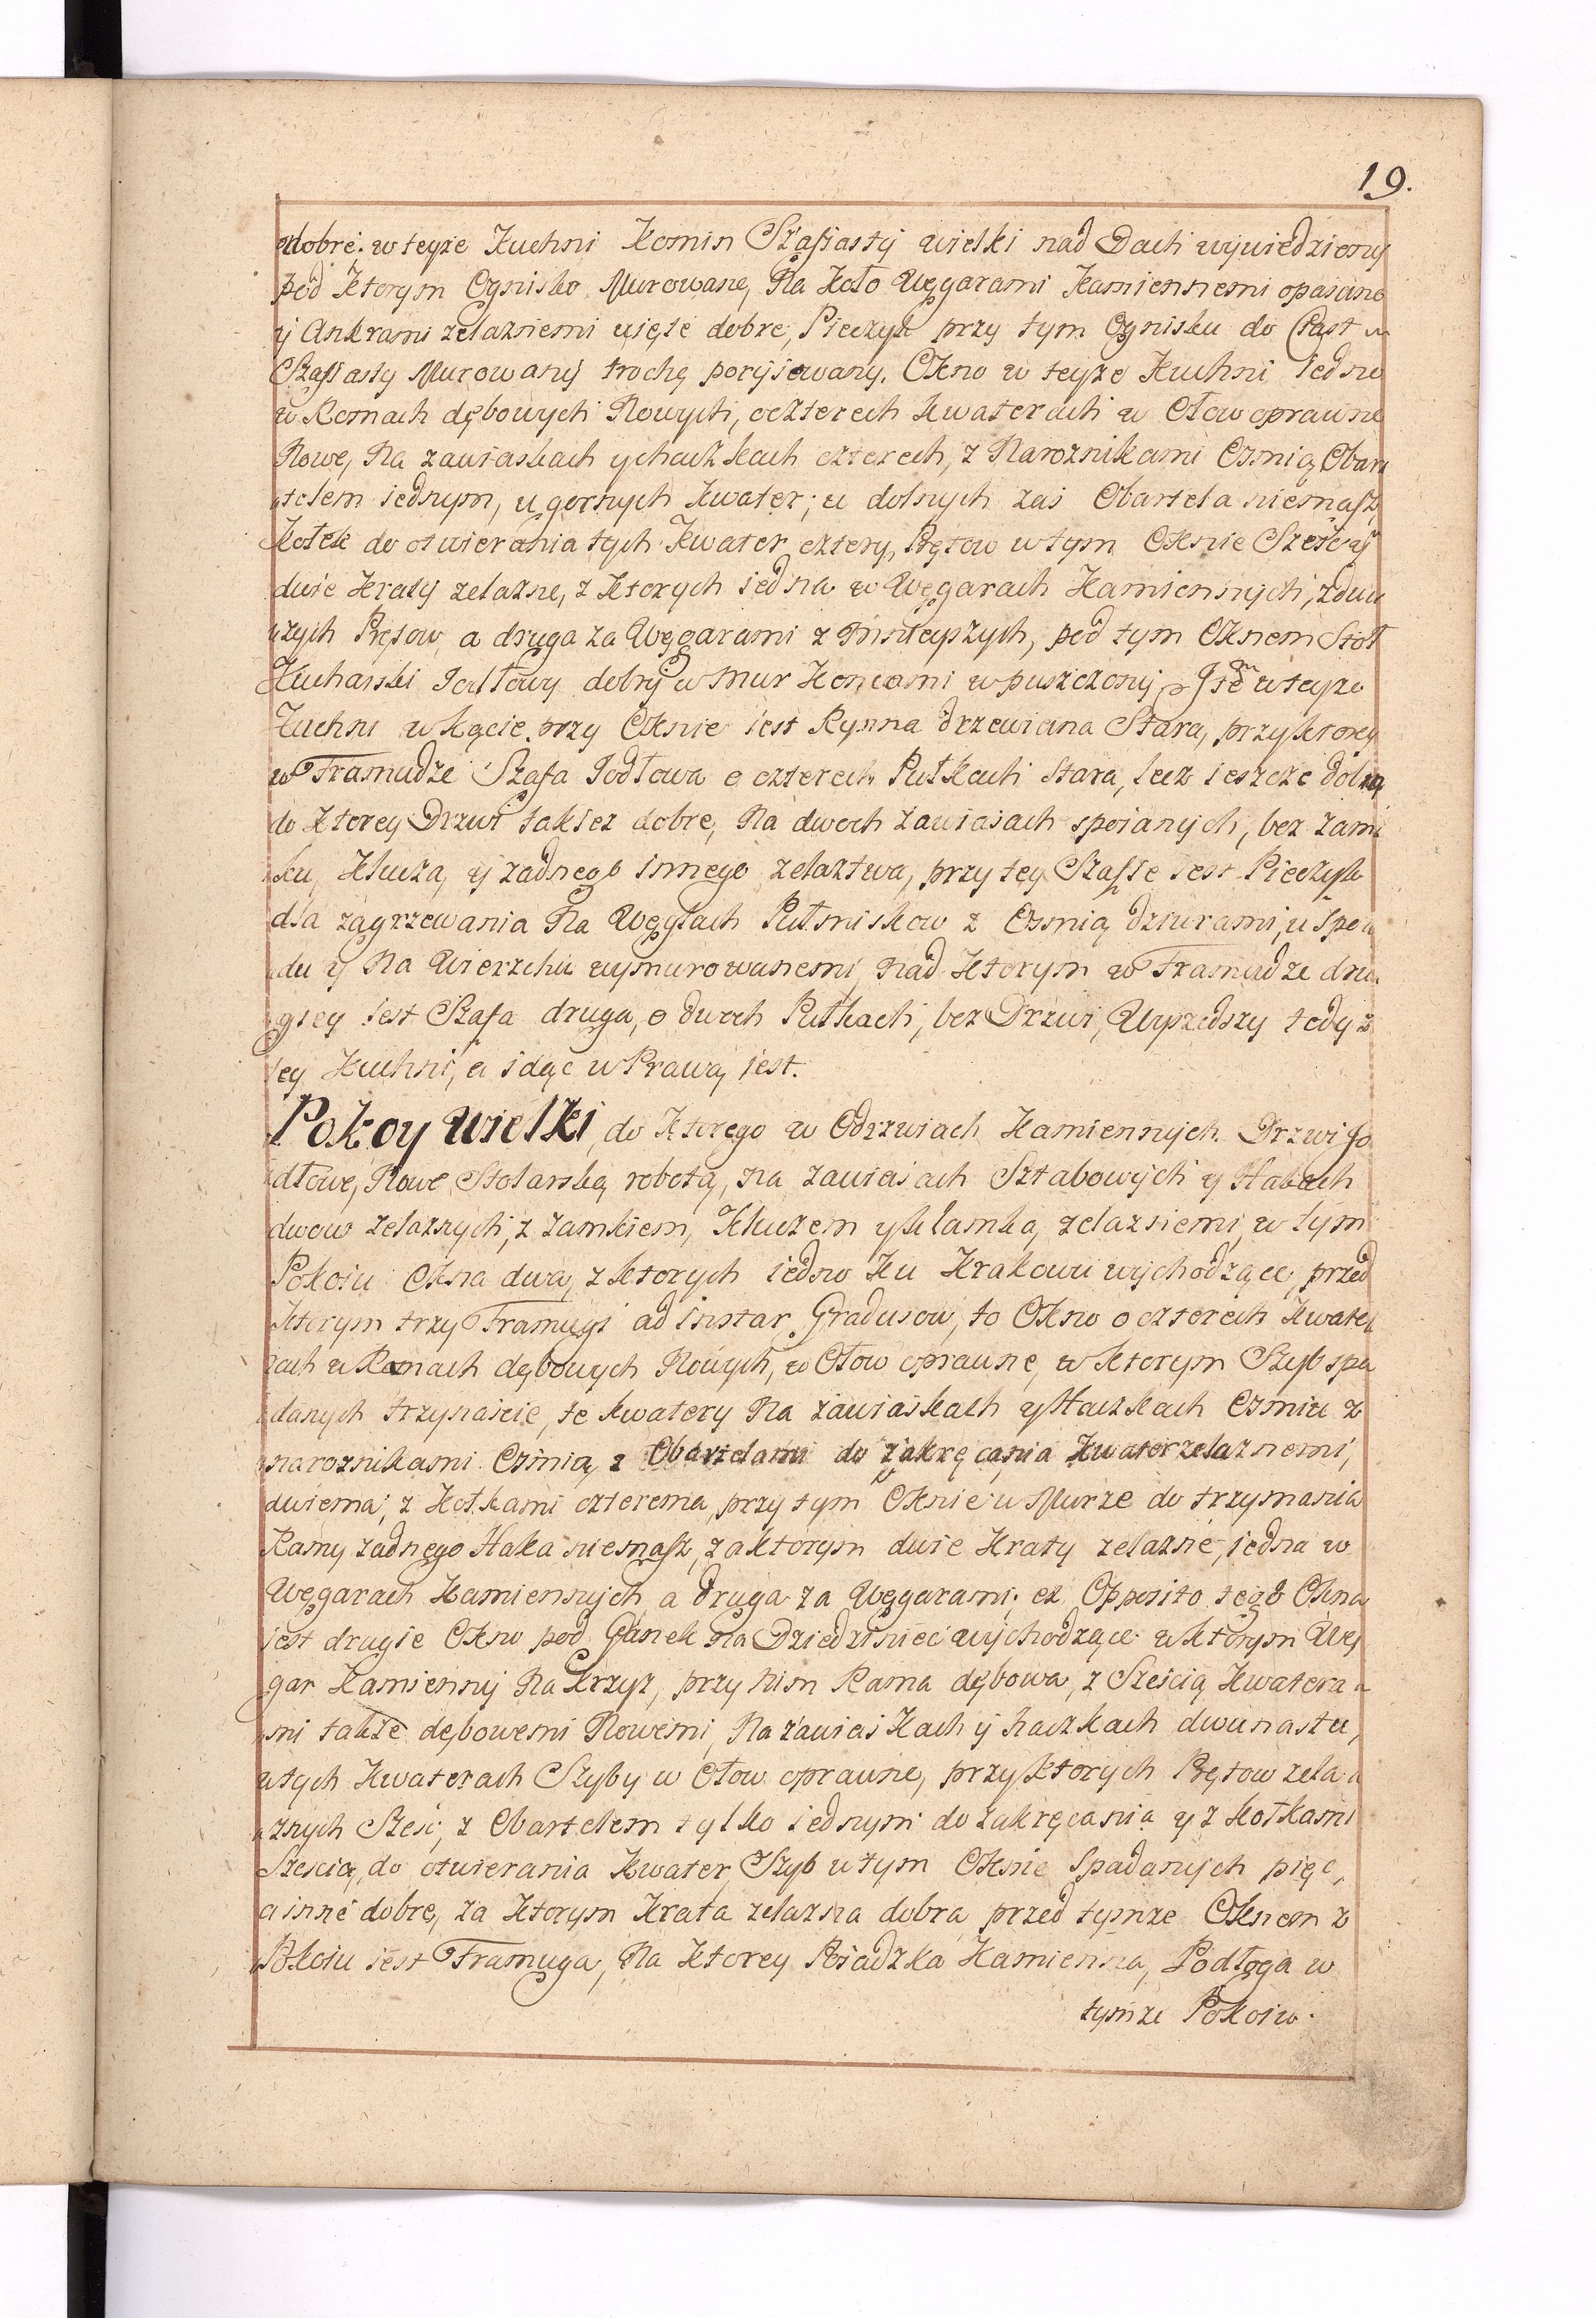 19.
dobre. w teyże Kuchni Komin Szafiasty wielki nad Dach wywiedziony
pod Ktorym Ognisko Murowane, Na Koło Węgarami Kamiennemi opasane
y Ankrami zelaznemi uięte dobre, Pieczyk przy tym Ognisku do Ciast
Szafiasty Murowany trochę porysowany. Okno w teyze Kuchni iedno
w Romach dębowych Nowych, o czterech kwaterach w Ołow oprawne
Nowe, Na zawiaskach y haczkach czterech, z Naroznikami Osmią, Obar
telem iednym, u gornych kwater; u dolnych zas Obartela niemasz,
Kołek do otwierania tych Kwater cztery, Prętow w tym Oknie Sześć y
dwie Kraty zelazne, z Ktorych iedna w Węgarach Kamiennych, z du
zych Prętow, a druga za Węgarami z mnieyszych, pod tym Oknem Stoł
Kucharski Jodłowy dobry w Mur Koncami wpuszczony, Itẽ w teyze
Kuchni w kącie przy Oknie iest Rynna drzewiana Stara, przy ktorey
w Framudze Szafa Jodłowa o czterech Pułkach stara, lecz ieszcze dobra,
do Ktorey Drzwi takiez dobre, Na dwoch zawiasach spoianych, bez zam
ku, Klucza, y zadnego innego zelaztwa, przy tey Szafie iest Pieczyk
dla zagrzewania Na Węglach Pułmiskow z Osmią dziurami, u Spo
du y Na Wierzchu wymurowanemi, nad Ktorym w Framudze dru
giey iest Szafa druga, o dwoch Pułkach, bez Drzwi, Wyszedszy tedy z
tey Kuchni, a idąc w Prawą iest.
Pokoy Wielki, do Ktorego w Odrzwiach Kamiennych. Drzwi Jo
dłowe, Nowe Stolarską robotą, na zawiasach Sztabowych y Hakach
dwow zelaznych, z zamkiem, Kluczem y klamką zelaznemi, w tym
Pokoiu Okna dwa, z ktorych iedno Ku Krakowu wychodzące, przed
Ktorym trzy Framugi ad instar Gradusow, to Okno o czterech Kwate
rach w Ramach dębowych Nowych, w Ołow oprawne, w ktorym Szyb spa
danych trzynaście, te kwatery Na zawiaskach y Haczkach Osmiu z
naroznikami Osmią, z Obartelami do zakręcania Kwater zelaznemi,
dwiema, z Kołkami czterema, przy tym Oknie w Murze do trzymania
Ramy zadnego Haka niemasz, za ktorym dwie Kraty zelazne, iedna w
Węgarach Kamiennych a druga za Węgarami; ex Opposito tego Okna
iest drugie Okno pod Ganek na Dziedziniec wychodzące w ktorym Wę
gar Kamienny Na krzyz, przy nim Rama dębowa, z Sześcią Kwatera
mi także dębowemi Nowemi, Na zawiaskach y haczkach dwunastu,
w tych Kwaterach Szyby w Ołow oprawne, przy ktorych Prętow zela
znych Sześć, z Obartelem tylko iednym do zakręcania y z kołkami
Sześcią, do otwierania Kwater, Szyb w tym Oknie Spadanych pięc,
a inne dobre, za Ktorym Krata zelazna dobra przed tymze Oknem z
Pokoiu iest Framuga, Na Ktorey Posadzka Kamienna, Podłoga w
tymze Pokoiu.